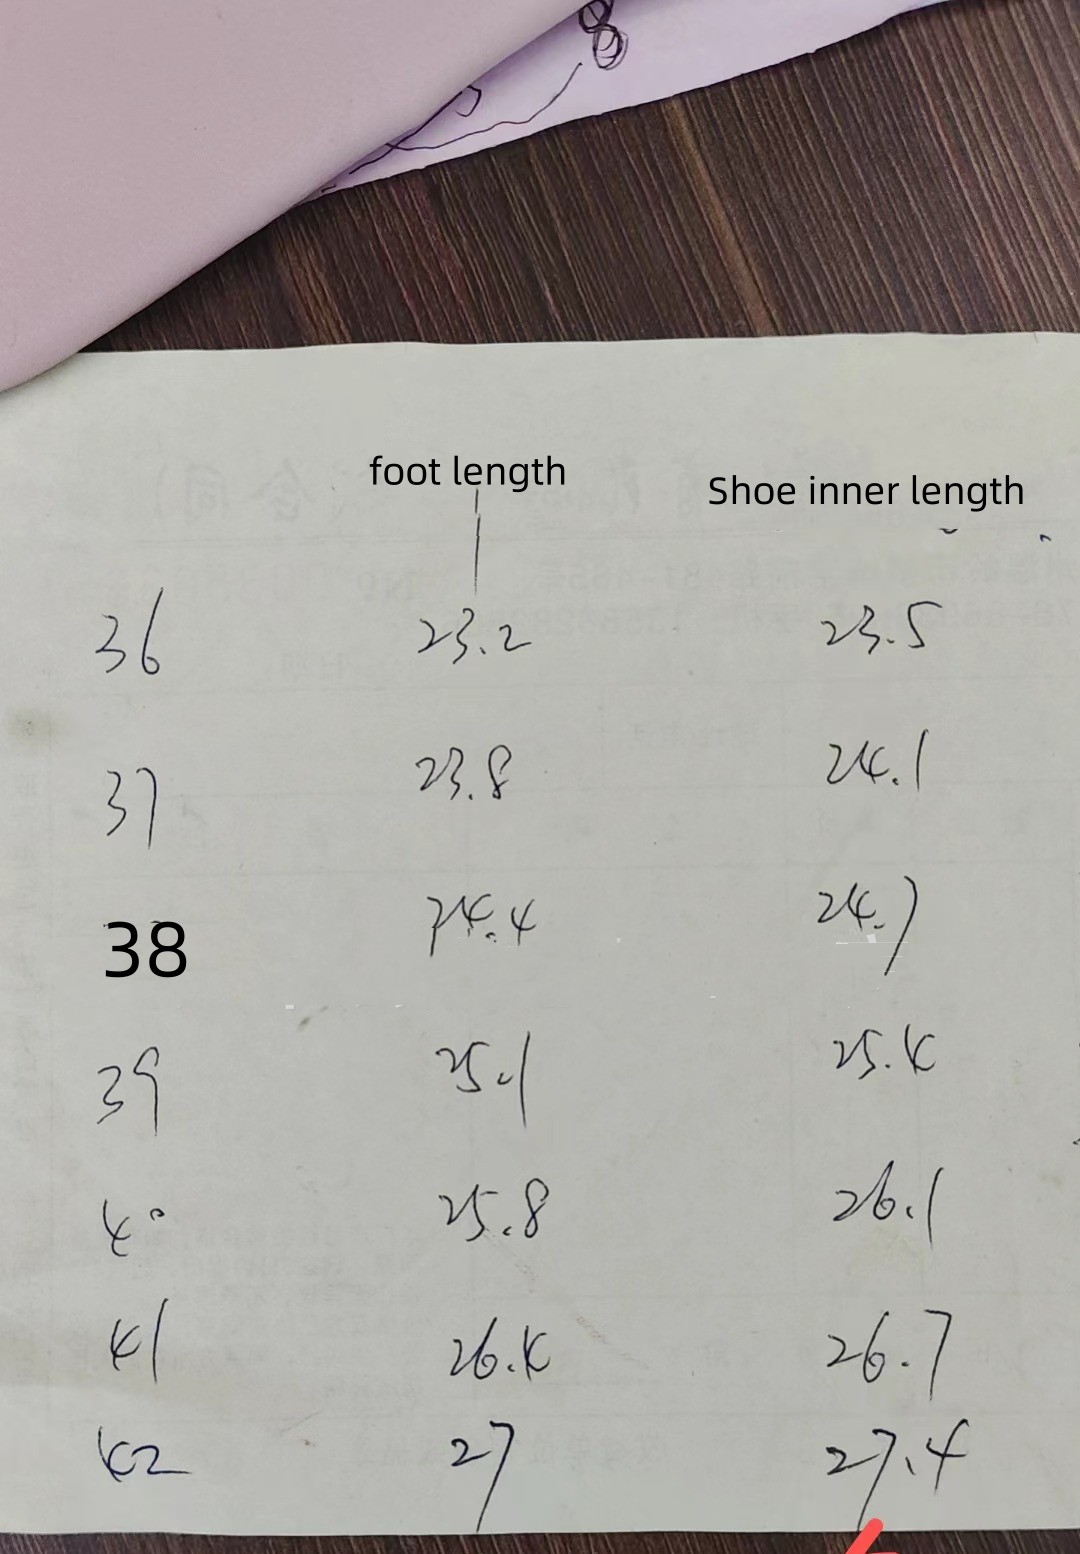 8
foot length
Shoe inner length
36 23.2 23.5
37 23.8 24.1
38 24.4 24.7
39 25.1 25.4
40 25.8 26.1
41 26.4 26.7
42 27 27.4